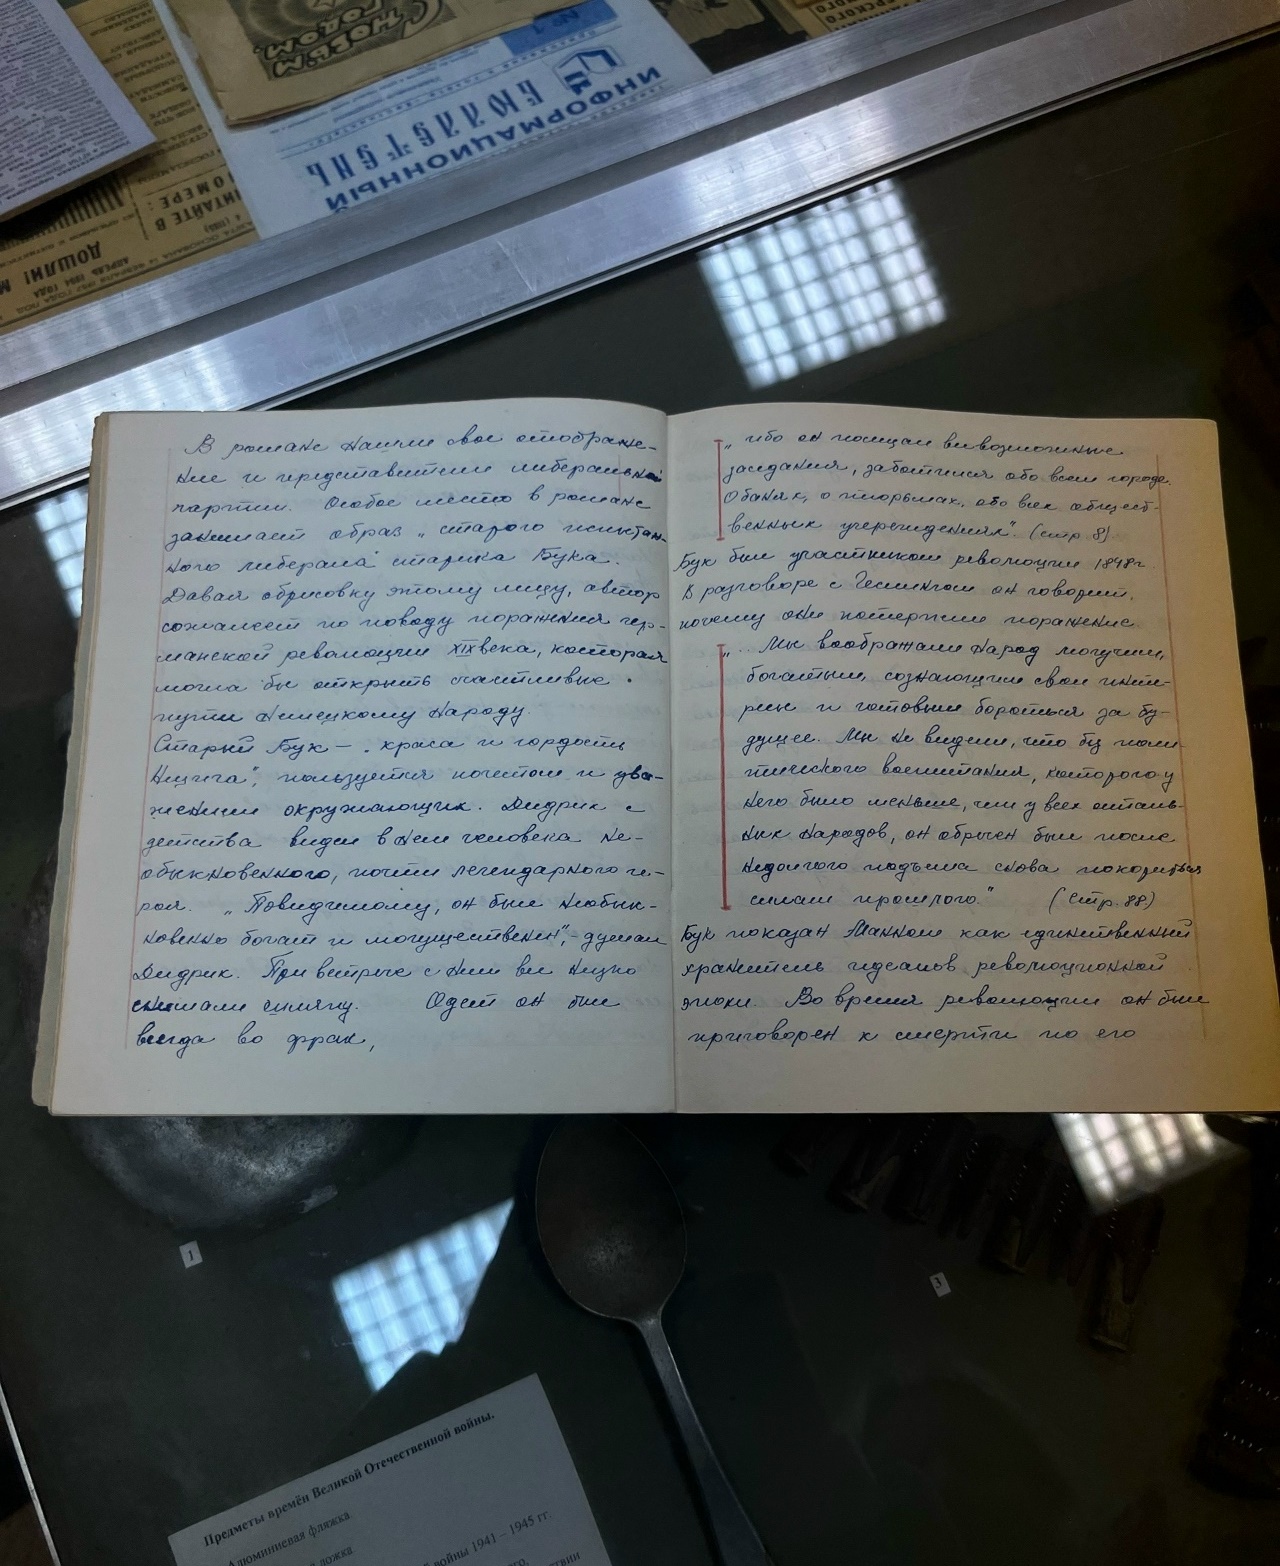 С НОВЫМ
ГОДОМ!
№ 1
ИНФОРМАЦИОННЫЙ
БЮЛЛЕТЕНЬ
ЧИТАЙТЕ В
НОМЕРЕ:
ДОШЛИ!
АПРЕЛЬ 1994 ГОДА
В романе нашли свое отображе-
ние и представители либеральной
партии. Особое место в романе
занимает образ „старого испытан-
ного либерала" старика Бука.
Давая обрисовку этому лицу, автор
сожалеет по поводу поражения гер-
манской революции XIX века, которая
могла бы открыть счастливые
пути немецкому народу.
Старый Бук – „краса и гордость
Нецига", пользуется почетом и ува-
жением окружающих. Дидрих с
детства видел в нем человека не-
обыкновенного, почти легендарного ге-
роя. „Повидимому, он был необык-
новенно богат и могущественен", – думал
Дидрих. При встрече с ним все низко
снимали шляпу. Одет он был
всегда во фрак,
„ибо он посещал всевозможные
заседания, заботился обо всем городе.
О банях, о тюрьмах, обо всех общест-
венных учреждениях". (стр 8).
Бук был участником революции 1848г.
В разговоре с Геслингом он говорит,
почему они потерпели поражение.
„.. Мы воображали народ могучим,
богатым, сознающим свои инте-
ресы и готовым бороться за бу-
дущее. Мы не видели, что без поли-
тического воспитания, которого у
него было меньше, чем у всех осталь-
ных народов, он обречен был после
недолгого подъема снова покориться
силам прошлого." (Стр. 88)
Бук показан Манном как единственный
хранитель идеалов революционной
эпохи. Во время революции он был
приговорен к смерти по его
1
3
Предметы времён Великой Отечественной войны.
Алюминиевая фляжка
ложка
войны 1941 – 1945 гг.